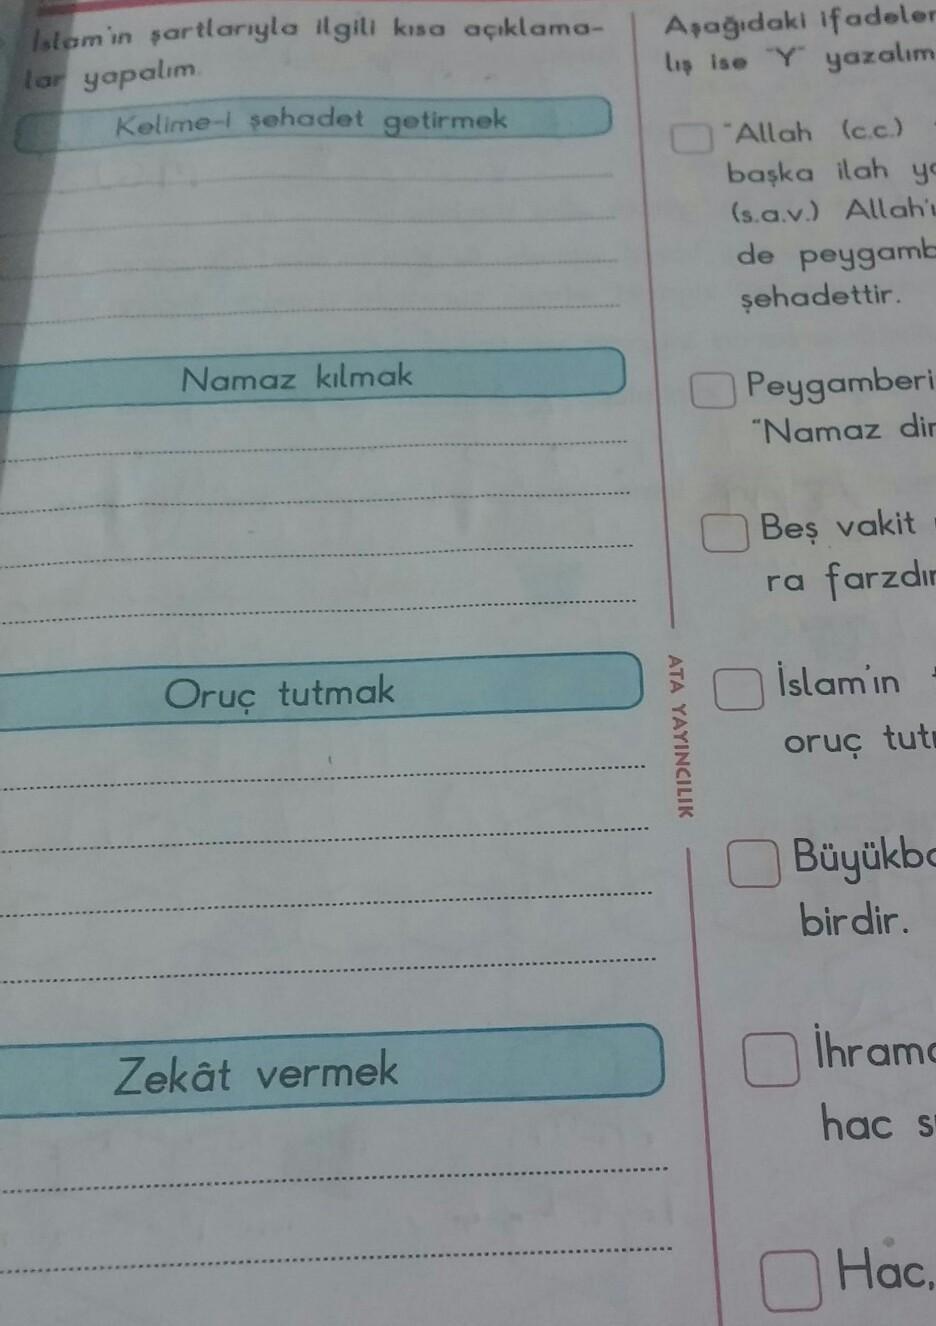 İslam'ın şartlarıyla ilgili kısa açıklama-
lar yapalım.
Kelime-i şehadet getirmek
Namaz kılmak
Oruç tutmak
Zekât vermek
ATA YAYINCILIK
Aşağıdaki ifadeler
lış ise "Y" yazalım
"Allah (c.c.)
başka ilah
(s.a.v.) Allah'ı
de peygamb
şehadettir.
Peygamberi
"Namaz din
Beş vakit
ra farzdır
İslam'ın
oruç tut
Büyükba
birdir.
İhrama
hac s
Hac,